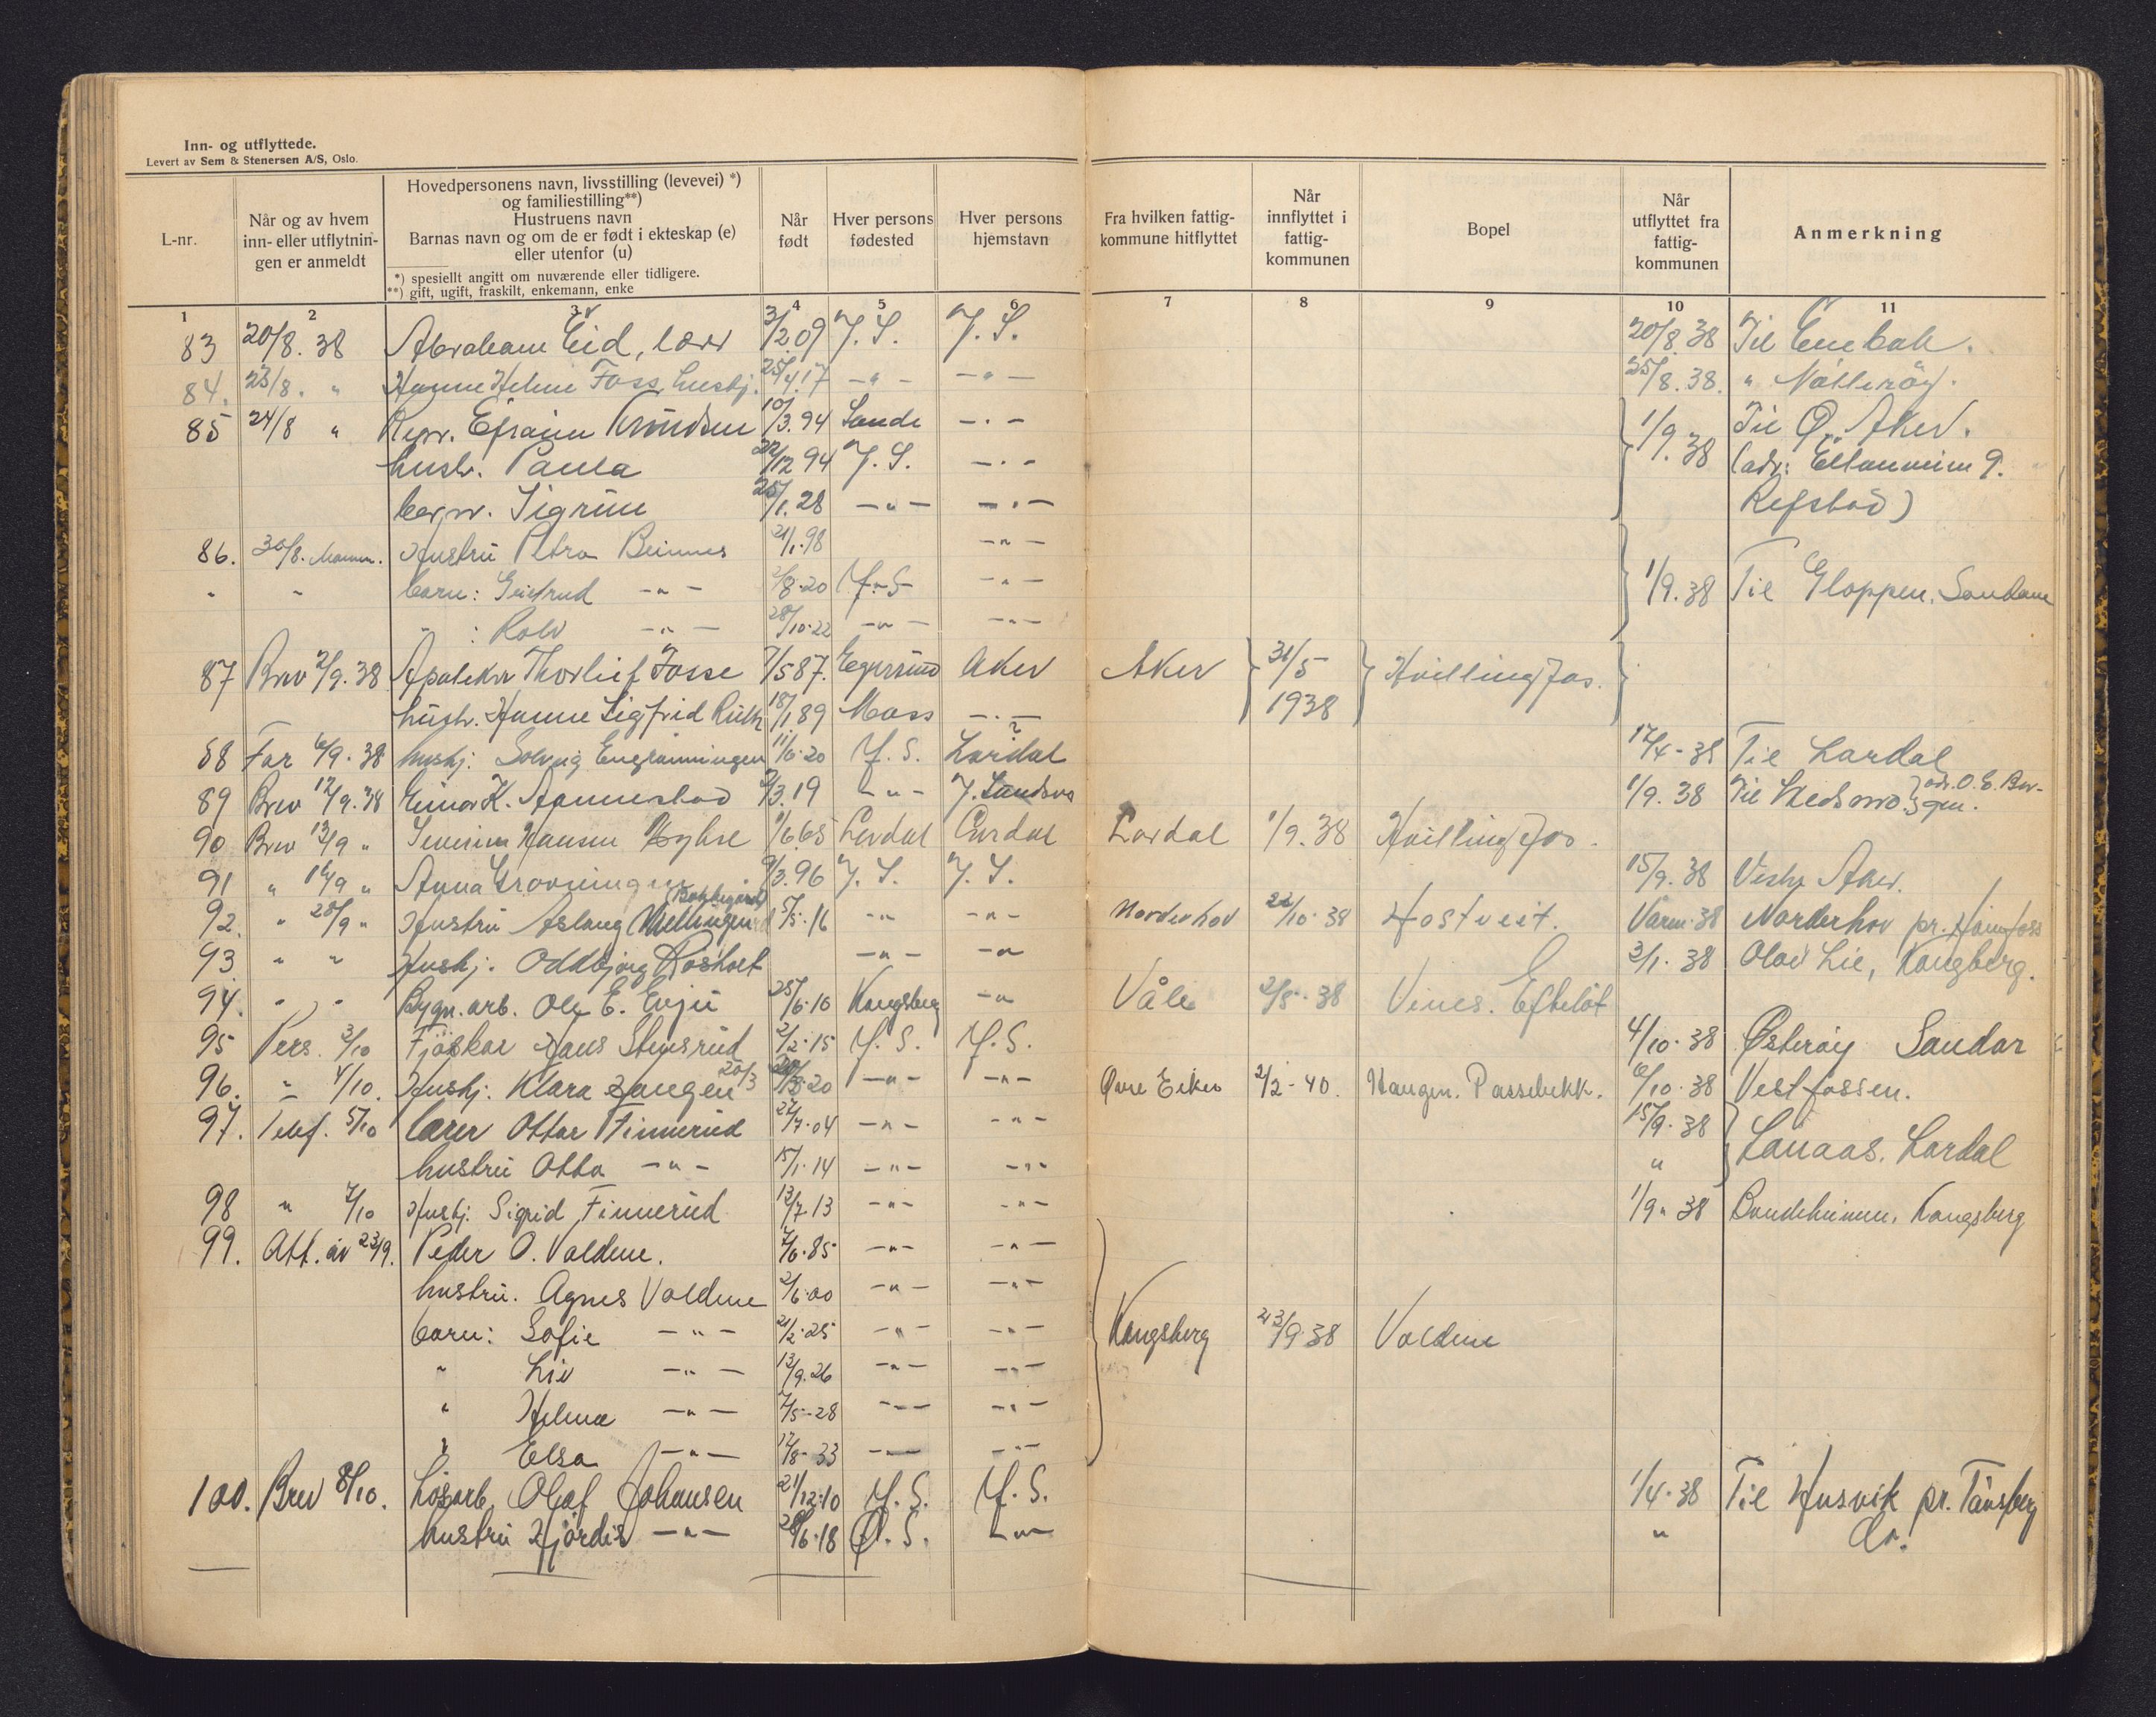 Inn- og utflyttede.
Levert av Sem & Stenersen A/S, Oslo.
L-nr.
Når og av hvem
inn- eller utflytnin-
gen er anmeldt
Hovedpersonens navn, livsstilling (levevei) *)
og familiestilling**)
Hustruens navn
Barnas navn og om de er født i ekteskap (e)
eller utenfor (u)
*) spesiellt angitt om nuværende eller tidligere.
**) gift, ugift, fraskilt, enkemann, enke
Når
født
Hver persons
fødested
Hver persons
hjemstavn
Fra hvilken fattig-
kommune hitflyttet
Når
innflyttet i
fattig-
kommunen
Bopel
Når
utflyttet fra
fattig-
kommunen
Anmerkning
1 2 3 4 5 6 7 8 9 10 11
83 20/8. 38 Abraham Eid, lærer 3/2 09 Y. S. Y. S. 20/8. 38 Til Enebak.
84. 23/8. " Hanne Helene Foss, hushj. 25/4.17 -"- -"- 25/8. 38. " Nøtterøy.
85 24/8 " Repr. Efraim Knudsen 10/3. 94 Sande -"- 1/9. 38 Til Ø. Aker.
hustr. Paula /12 94 Y. S. -"- (adr: 9.
barn. Sigrun 25/1. 28 -"- -"- Refstad)
86. 30/8. Hustru Petra 21/1. 98 -"-
" " barn: -"- 2/8. 20 Y. S -"- 1/9. 38 Til Gloppen. Sandane
" : Rolv -"- 28/10. 22 -"- -"-
87 Brev 2/9. 38 Apoteker Thorleif Fosse 7/5 87. Egersund Aker Aker 31/5 Hvittingfos.
hustr. Hanne Sigfrid Ruth 18/1 89 Moss -"- 1938
88 Far 6/9. 38 hushj: Solveig Engrønningen 11/6. 20 Y. S. Lardal ? 12/4 - 39 Til Lardal
89 Brev 12/9. 38 Einar K. Aannestad 2/3. 19 -"- Y. Sandsv 1/9. 38 Til Skedsmo. adr. O. E. Ber-
gen.
90 Brev 13/9 " Hansen 1/6 65 Lardal Lardal Lardal 1/9. 38 Hvittingfos.
91 " 16/9 " Anna Grønningen 9/3. 96 Y. S. Y. S. 15/9. 38 Vestre Aker.
92. " 28/9 " Hustru Aslaug (Bakkegård) 5/5. 16 -"- -"- Norderhov 22/10. 38 Hostveit. 38 Norderhov pr. Hønefoss
93 " " Hushj. Oddbjørg Rosholt -"- -"- 2/1. 38 Olav Lie, Kongberg.
94. " " Bygn. arb. Ole E. Evju 25/6. 10 Kongsberg -"- Våle 2/5. 38 Vines. Efteløt
95 Pers. 3/10 Fjøskar Hans Stensrud 2/2. 15 Y. S. Y. S. 4/10. 38 Østerøy Sandar
96. " 4/10. Hushj. Klara Haugen 20/3 20/3. 20 -"- -"- Øvre Eiker 2/2 - 40. Haugen. Passebekk. 6/10. 38 Vestfossen.
97. Telef. 5/10 lærer Ottar Finnerud 27/7. 04 -"- -"- 15/9. 38 Lanaas. Lardal
hustru Otta -"- 15/1. 14 -"- -"- "
98 " 7/10 Hushj. Sigrid Finnerud 13/7. 13 -"- -"- 1/9. 38 Bondeheimen, Kongsberg
99. Att. av 23/9. Peder O. Voldene. 7/6. 85 -"- -"-
hustru. Agnes Voldene 2/6. 00 -"- -"-
barn: Sofie -"- 21/2. 25 -"- -"- Kongsberg 23/9. 38 Voldene
" Liv -"- 13/9. 26 -"- -"-
" Helene -"- 7/5 - 28 -"- -"-
" Elsa -"- 12/8. 33 -"- -"-
100. Brev 8/10. Løsarb. Olaf Johansen 21/12. 10 Y. S. Y. S. 1/4. 38 Til Husvik pr. Tønsberg
hustru Hjørdis -"- /6. 18 Ø. S. -"- " do.